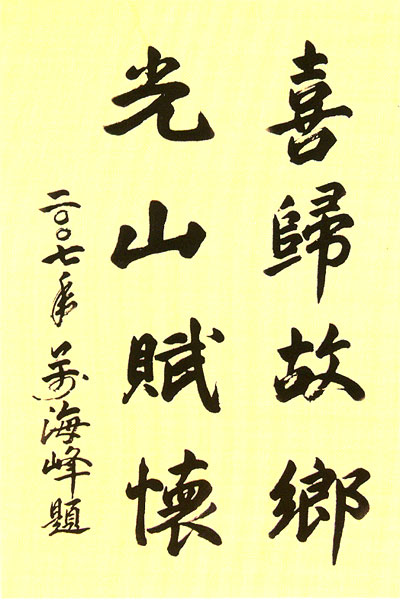 喜歸故鄉
光山賦懷
二〇〇七年 万海峰題